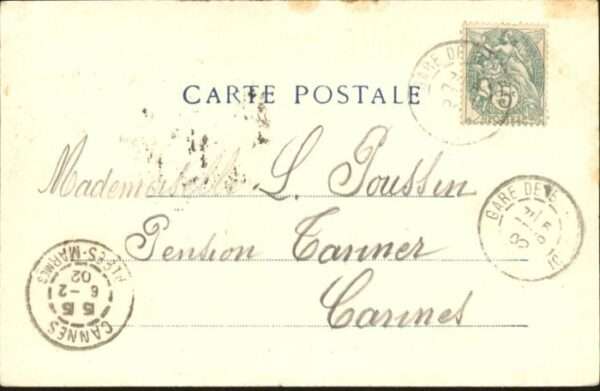 CARTE POSTALE
Mademoiselle L. Poussin
Pension Tanner
Cannes
GARE DE
5
GARE DE
CANNES
5 E
6 - 2
02
ALPES-MARMES